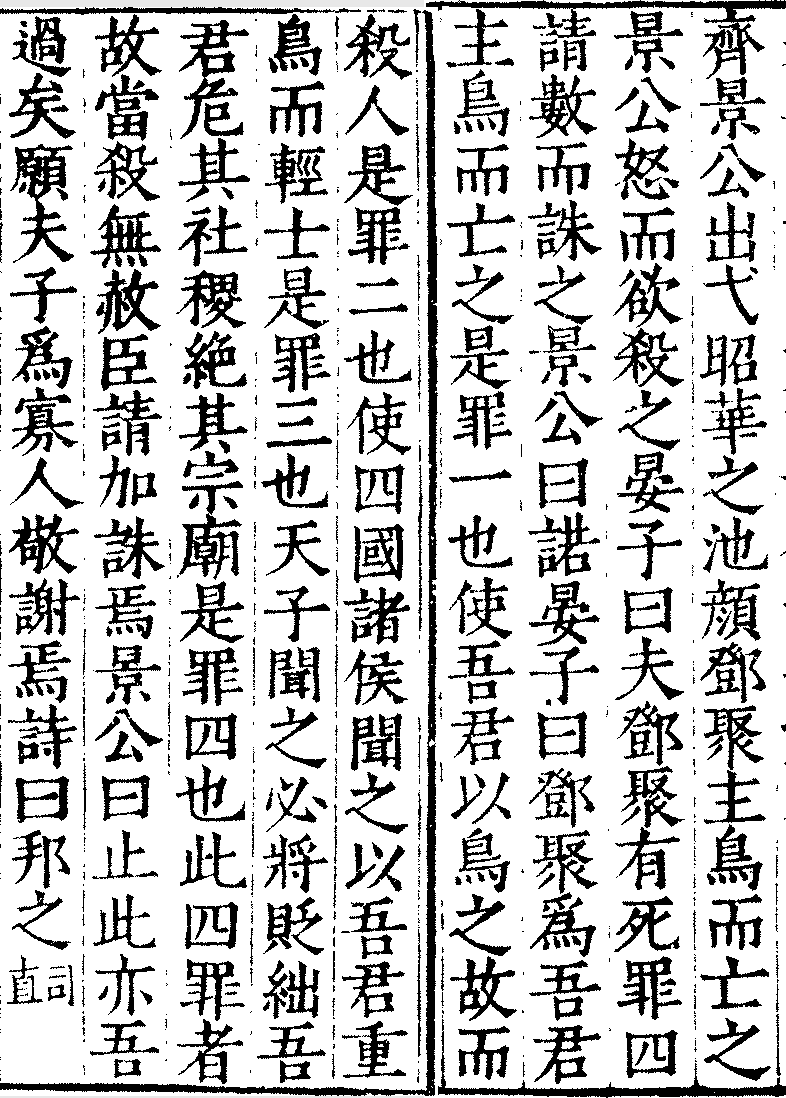 齊景公出弋昭華之池顔鄧聚主鳥而亡之
景公怒而欲殺之晏子曰夫鄧聚有死罪四
請數而誅之景公曰諾晏子曰鄧聚爲吾君
主鳥而亡之是罪一也使吾君以鳥之故而
殺人是罪二也使四國諸侯聞之以吾君重
鳥而輕士是罪三也天子聞之必將貶絀吾
君危其社稷絶其宗廟是罪四也此四罪者
故當殺無赦臣請加誅焉景公曰止此亦吾
過矣願夫子爲寡人敬謝焉詩曰邦之司直